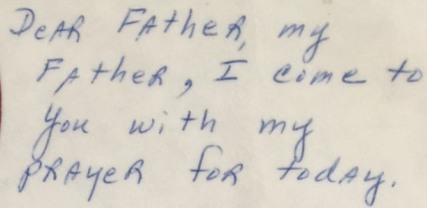 Dear Father, my
Father, I come to
you with my
prayer for today.